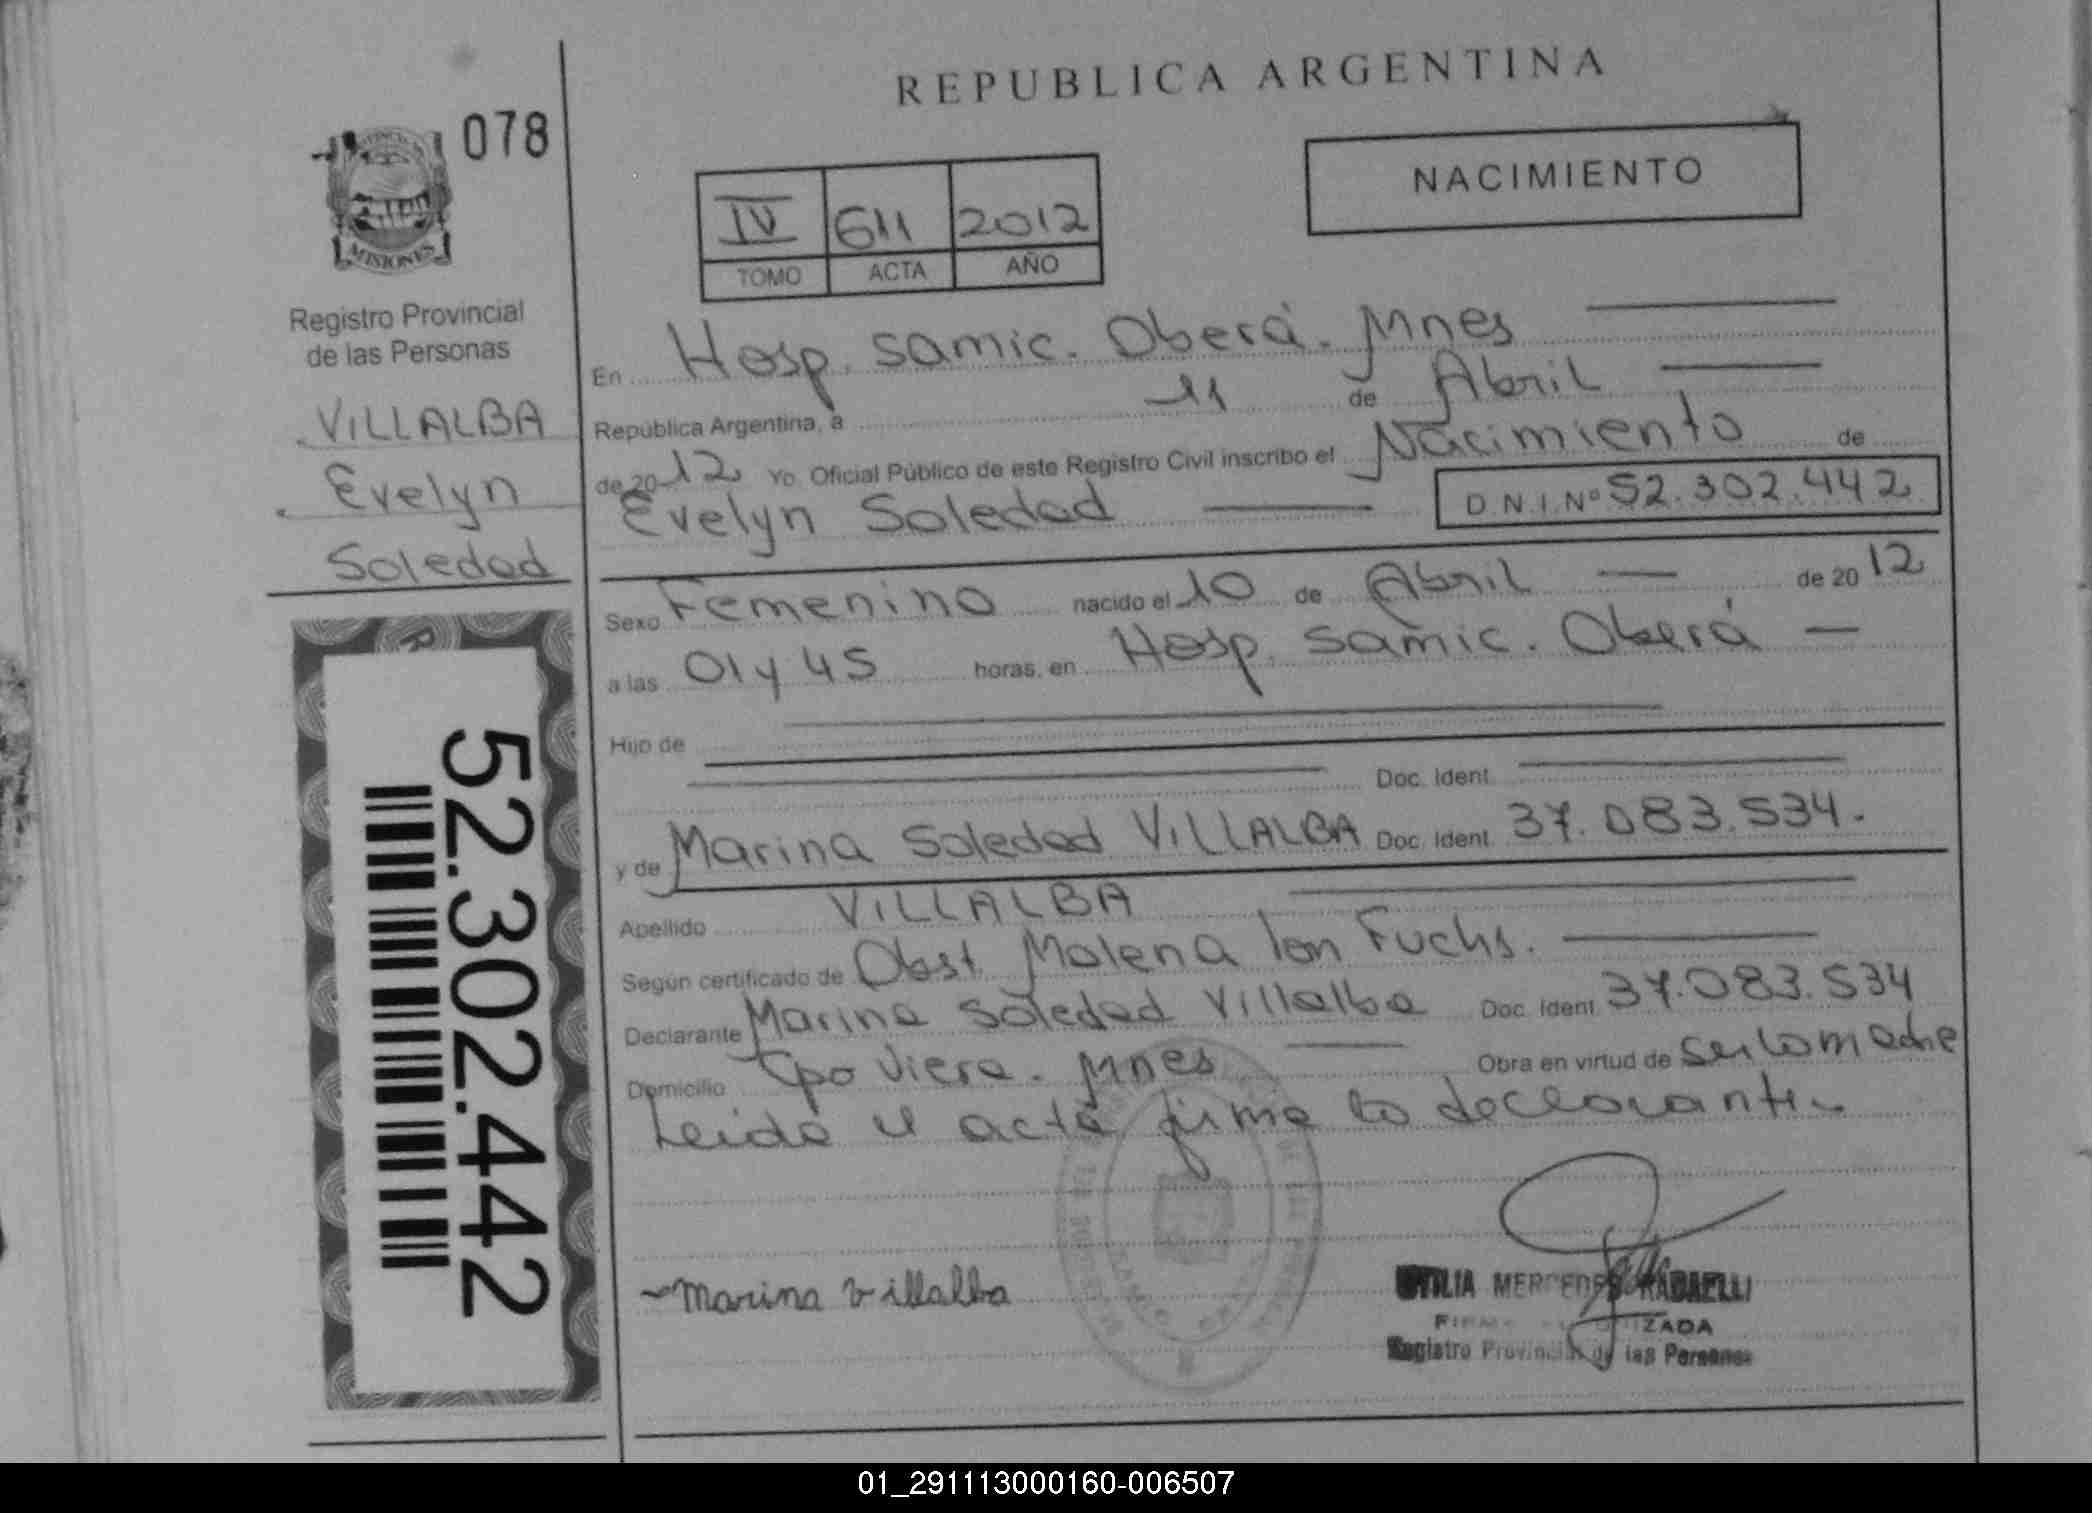 REPUBLICA ARGENTINA
078
NACIMIENTO
IV 611 2012
TOMO ACTA AÑO
MISIONES
Registro Provincial
de las Personas
VILLALBA
Evelyn
Soledad
52.302.442
En Hosp. Samic. Oberá. Mnes
República Argentina, a 11 de Abril
de 2012 Yo, Oficial Público de este Registro Civil inscribo el Nacimiento de
Evelyn Soledad D.N.I. Nº 52.302.442
Sexo Femenino nacido el 10 de Abril de 2012
a las 01 y 45 horas, en Hosp. Samic. Oberá
Hijo de
Doc. Ident.
y de Marina Soledad VILLALBA Doc. Ident. 37.083.534.
Apellido VILLALBA
Según certificado de Obst. Malena Fuchs.
Declarante Marina Soledad Villalba Doc. Ident. 37.083.534
Domicilio Cpo Viera. Mnes Obra en virtud de ser la madre
Leida el acta firma la declarante
Marina Villalba
MERCEDES RABAELLI
Registro Provincial de las Personas
01_291113000160-006507